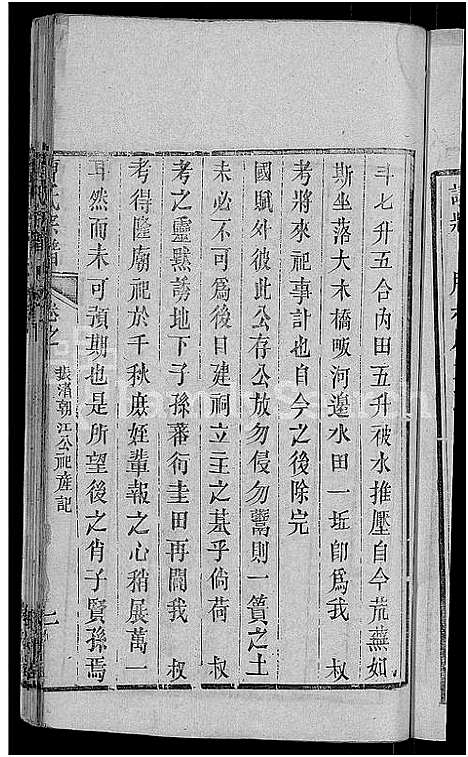 斗七升五合內田五升被水推壓自今荒蕪如
斯坐落大木橋畈河邊水田一坵卽爲我 叔
考將來祀事計也自今之後除完
國賦外彼此公存公放勿侵勿鬻則一簣之土
未必不可爲後日建祠立主之基乎倘荷 叔
考之靈默誘地下子孫蕃衍圭田再闢我 叔
考得隆廟祀於千秋庶姪輩報之心稍展萬一
耳然而未可預期也是所望後之肖子賢孫焉
氏宗譜 卷之 裴渚朝江公祀產記 二